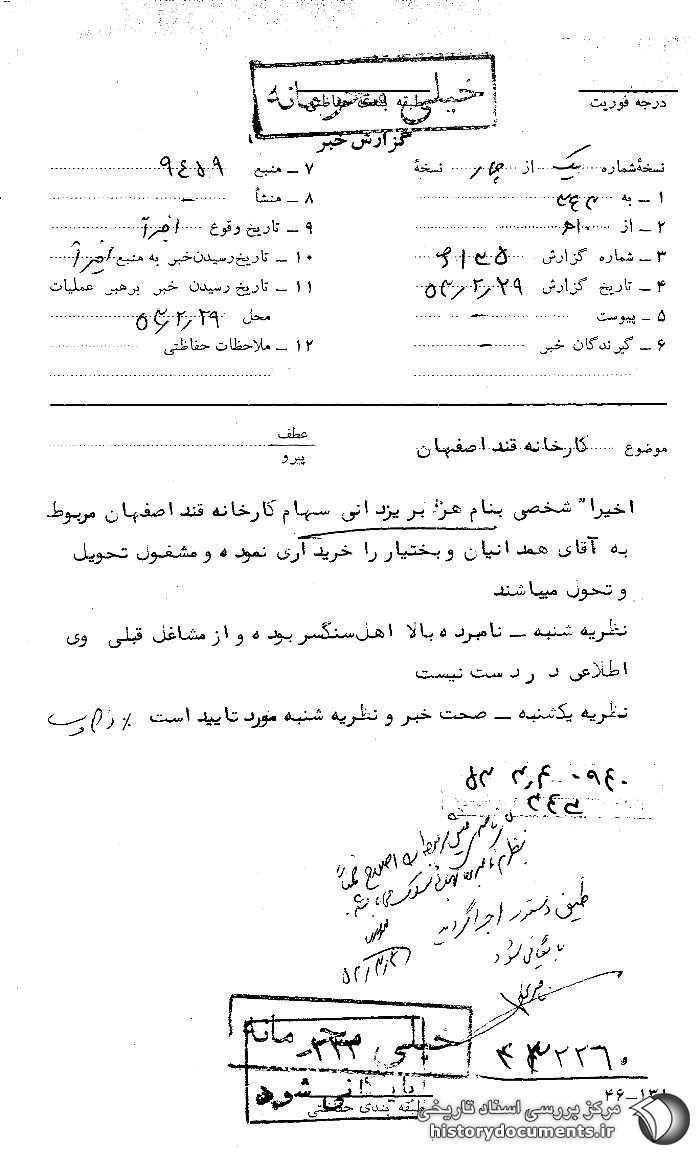 خیلی محرمانه
طبقه بندی حفاظتی
درجه فوریت
گزارش خبر
نسخه شماره یک از چهار نسخه
۱ ـ به ۳۴۲
۲ ـ از
۳ ـ شماره گزارش
۴ ـ تاریخ گزارش ۵۳/۲/۲۹
۵ ـ پیوست ـ
۶ ـ گیرندگان خبر ـ
۷ ـ منبع ۹۴۵۹
۸ ـ منشأ ـ
۹ ـ تاریخ وقوع اخیراً
۱۰ ـ تاریخ رسیدن خبر به منبع اخیراً
۱۱ ـ تاریخ رسیدن خبر برهبر عملیات
محل ۵۳/۲/۲۹
۱۲ ـ ملاحظات حفاظتی
موضوع کارخانه قند اصفهان
عطف
پیرو
اخیرا" شخصی بنام هژبر یزدانی سهام کارخانه قند اصفهان مربوط
به آقای همدانیان و بختیار را خریداری نموده و مشغول تحویل
و تحول میباشند
نظریه شنبه ـ نامبرده بالا اهل سنگسر بوده و از مشاغل قبلی وی
اطلاعی در دست نیست
نظریه یکشنبه ـ صحت خبر و نظریه شنبه مورد تایید است
دستور اجرا گردید
بایگانی شود
خیلی محرمانه
۳۳۳
بایگانی شود
طبقه بندی حفاظتی
مرکز بررسی اسناد تاریخی
historydocuments.ir